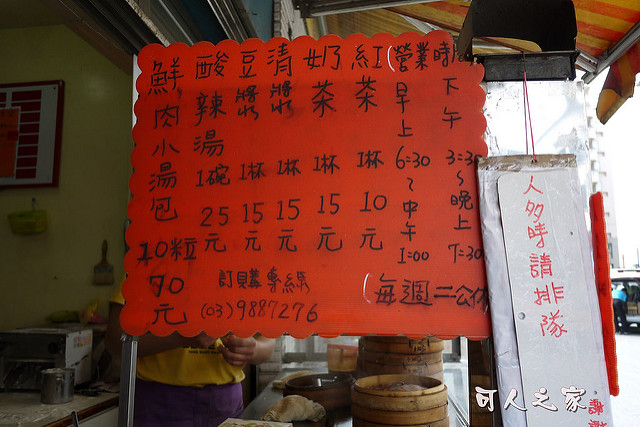 鮮肉小湯包
10粒
70元
酸辣湯
1碗
25元
豆漿
1杯
15元
清漿
1杯
15元
奶茶
1杯
15元
紅茶
1杯
10元
(營業時間
早上
6:30
~
中午
1:00
下午
3:30
~
晚上
7:30
訂購專線
(03)9887276
(每週二公休
人多時請排隊
可人之家